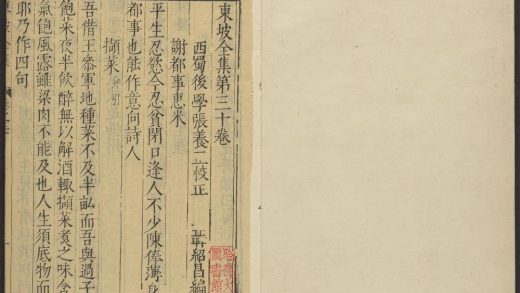 東坡全集第三十卷
西蜀後學張養正校正
謝都事惠米
平生忍慾今忍貧閉口逢人不少陳俸薄身
都事也能作意向詩人
擷菜
吾借王參軍地種菜不及半畝而吾與過子
飽菜夜半飲醉無以解酒輙擷菜煮之味含
氣飽風露雖粱肉不能及也人生須底物而
耶乃作四句